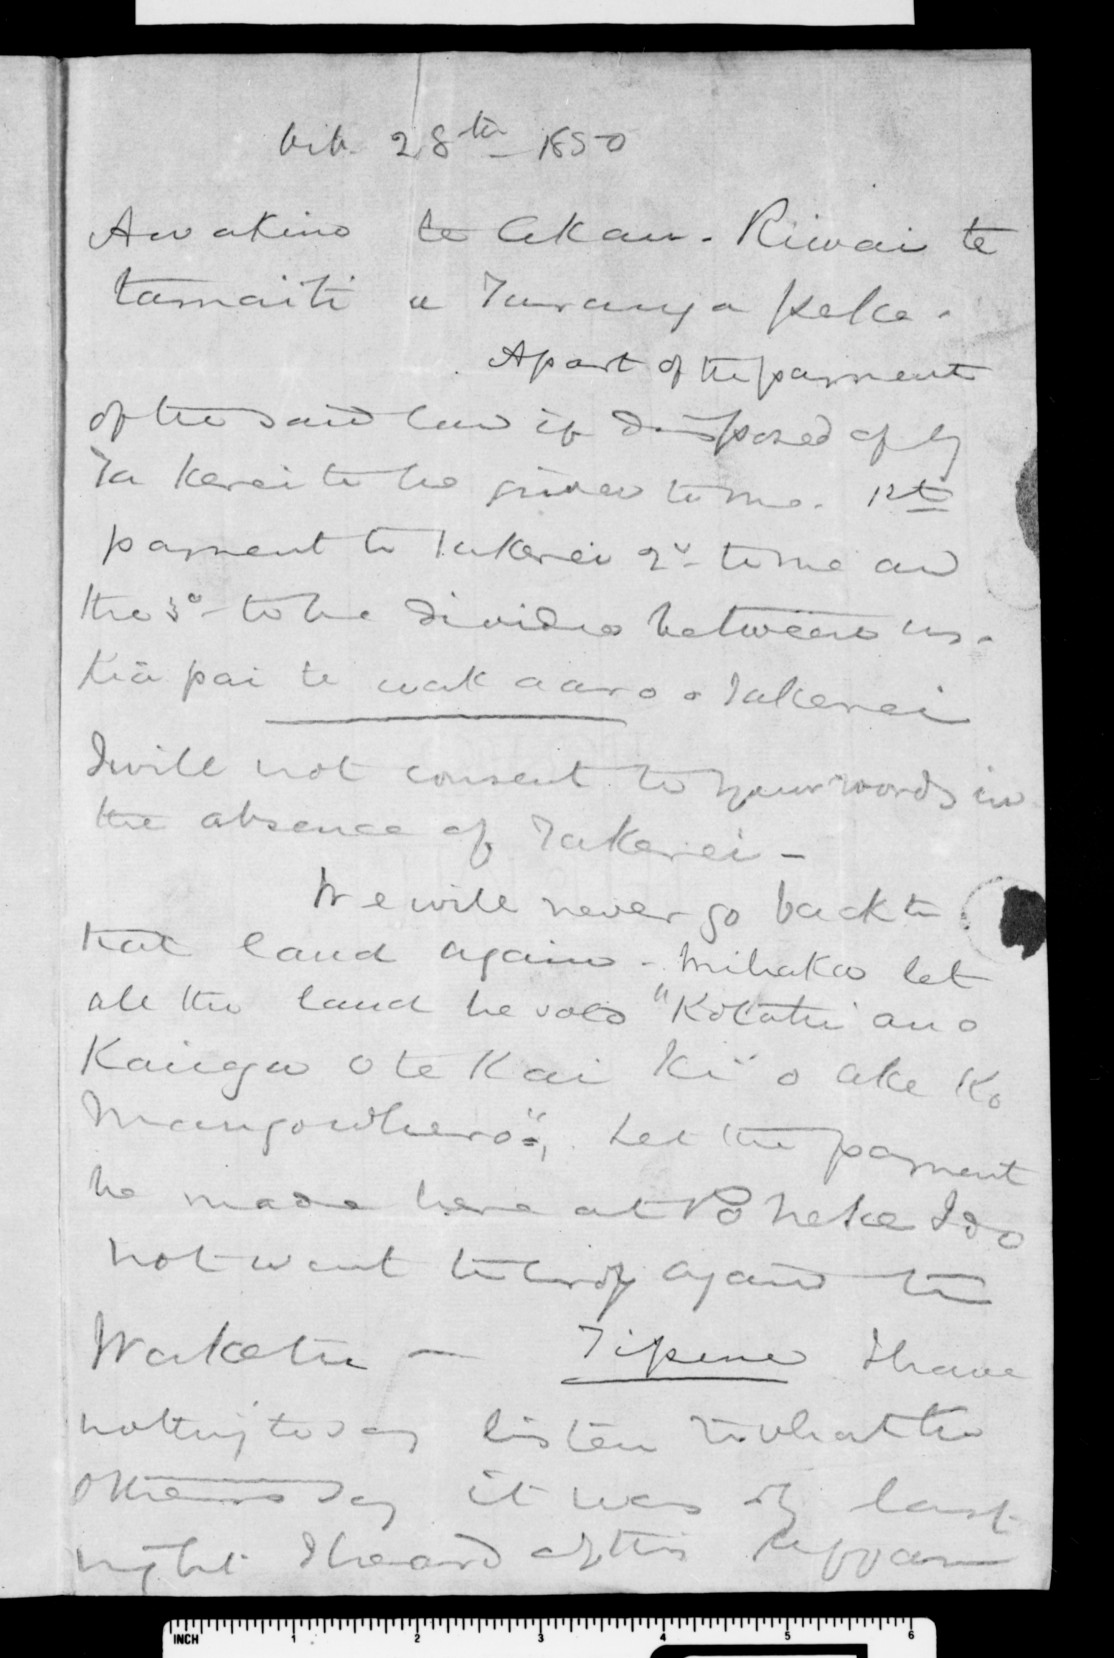 Feb. 28th 1850
Awakino te Akau. Riwai te
tamaiti a Turanga peke.
A part of the payment
of the said land if disposed of by
Ta Kerei to be given to me. 1st
payment to Takerei 2d to me and
the 3d to be divided between us.
Kia pai te wakaaro o Takerei
I will not consent to your words in
the absence of Takerei -
We will never go back to
that land again. Mihaka let
all the land be sold "Kotahi ano
Kainga o te Kai Ki" o ake Ko
Mangowhero", Let the payment
be made here at Po neke I do
not want to again to
Wakatu - Tipene I have
nothing to say listen to what the
others say it was only last
night I heard of this affair
INCH 1 2 3 4 5 6